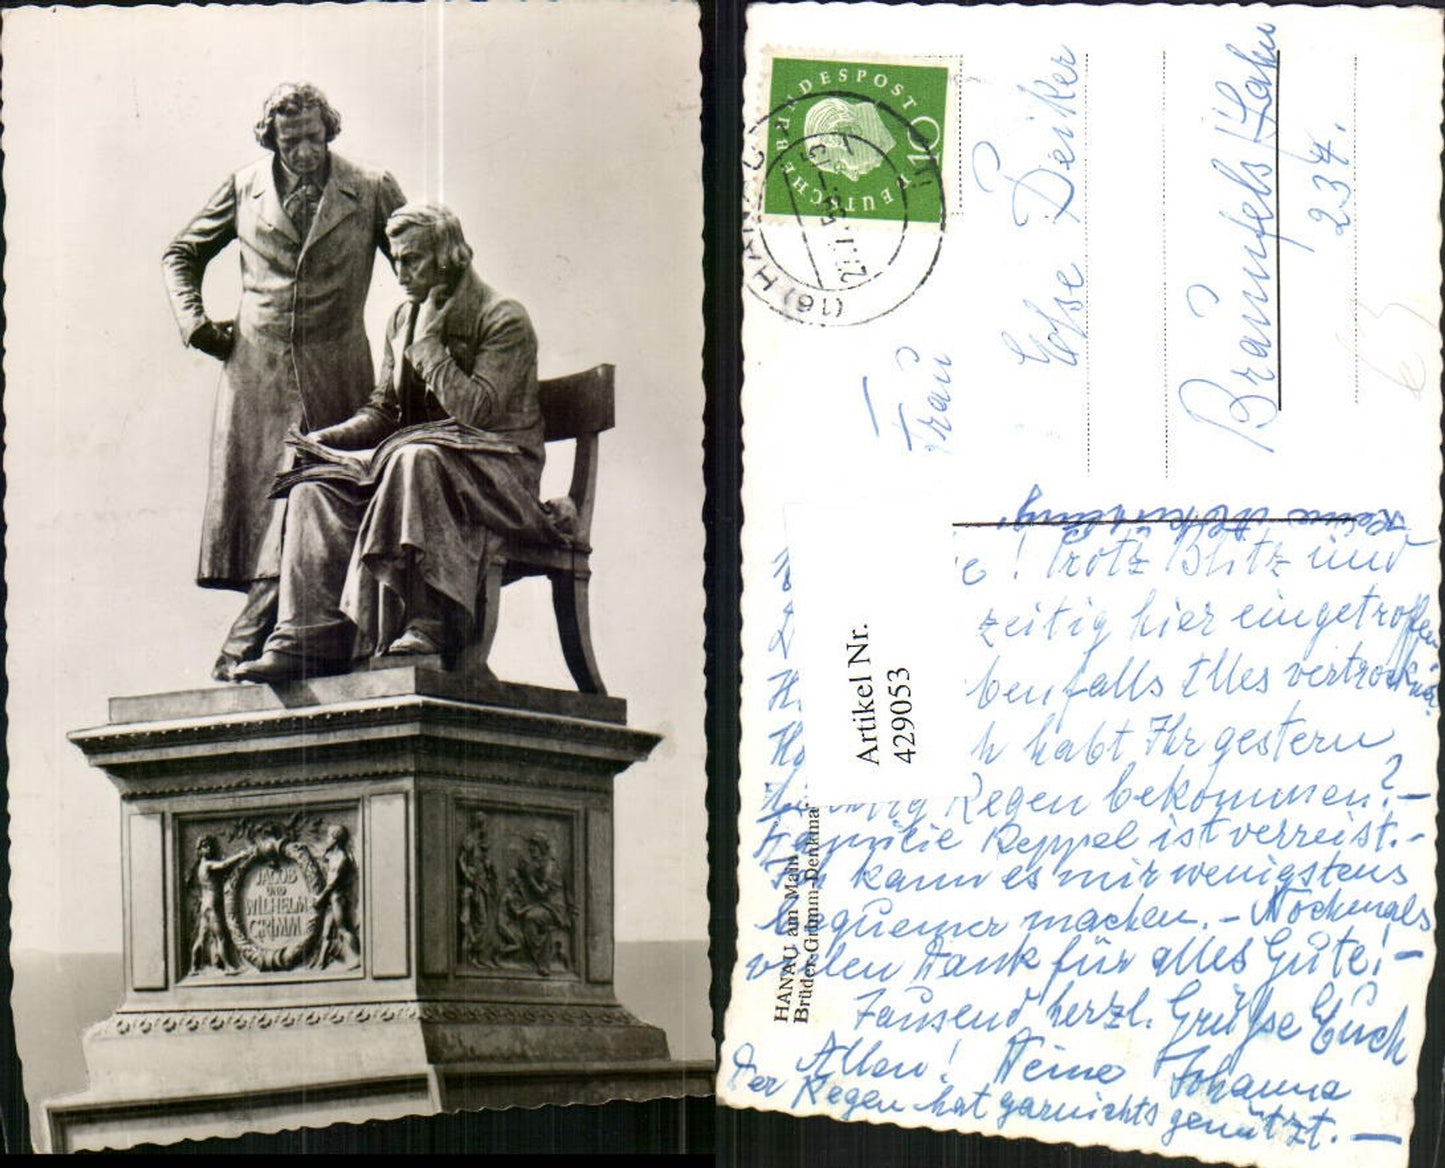 JACOB
UND
WILHELM
GRIMM
DEUTSCHE BUNDESPOST
10
(16) HANAU
Frau
Else Deiker
Braunfels/Lahn
234.
Artikel Nr.
429053
HANAU am Main
Brüder-Grimm-Denkma
Keine Abkühlung!
! Trotz Blitz und
zeitig hier eingetroffen
benfalls Alles vertrocknet.
habt Ihr gestern
Regen bekommen? –
Familie Reppel ist verreist. –
Ich kann es mir wenigstens
bequemer machen. – Nochmals
vielen Dank für alles Gute! –
Tausend herzl. Grüße Euch
Allen! Deine Johanna
Der Regen hat garnichts genützt. —